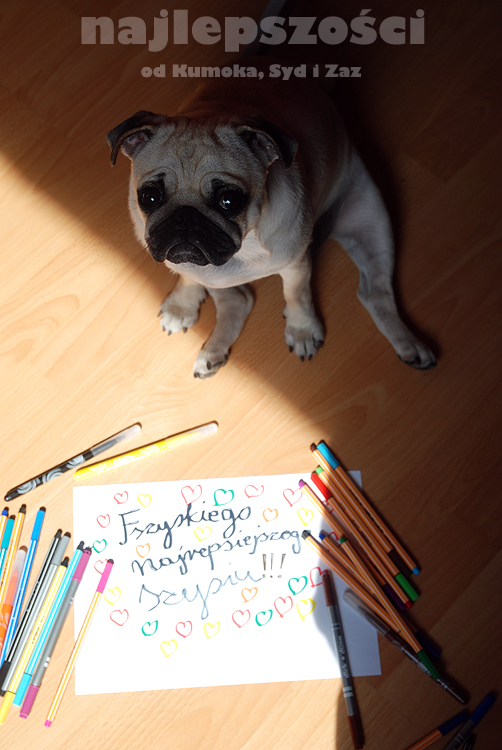 najlepszości
od Kumoka, Syd i Zaz
Fszyskiego
najrepsiejszego
Szypciu!!!